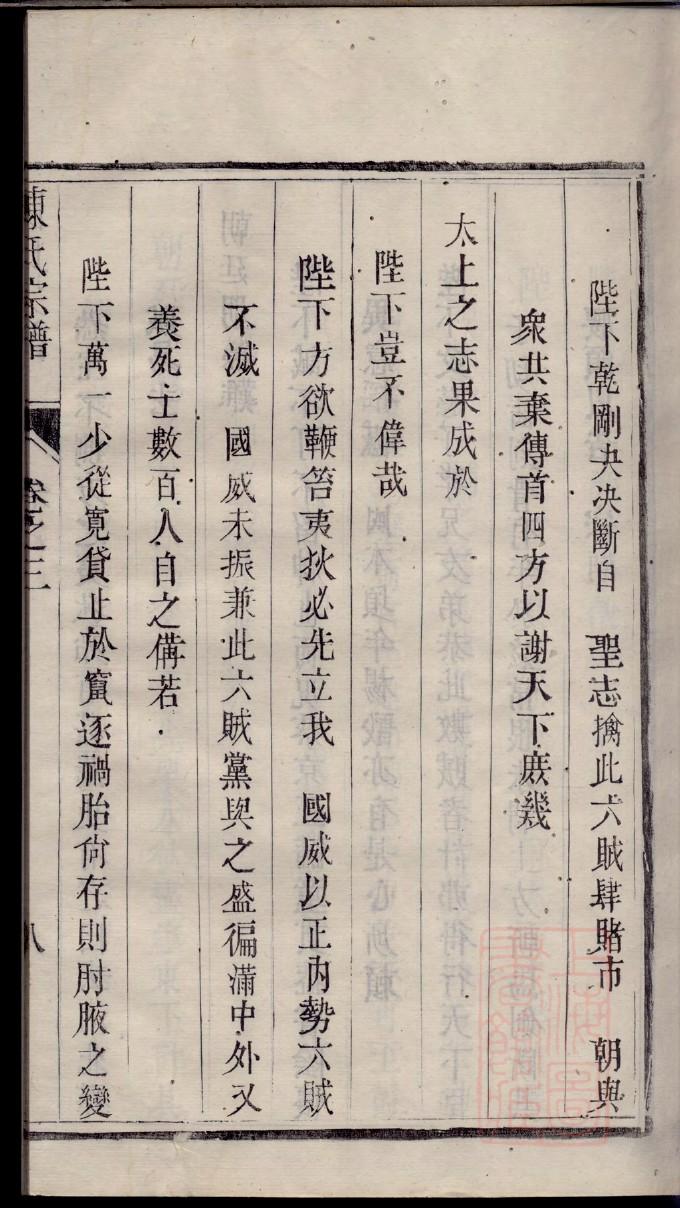 陛下乾剛夬決斷自　聖志擒此六賊肆賭市　朝與
衆共棄傳首四方以謝天下庻幾
太上之志果成於
陛下豈不偉哉
陛下方欲鞭笞夷狄必先立我　國威以正內勢六賊
不滅　國威未振兼此六賊黨與之盛徧滿中外又
養死士數百人自之備若
陛下萬一少從寛貸止於竄逐禍胎尙存則肘腋之變
陳氏宗譜　卷之三　八